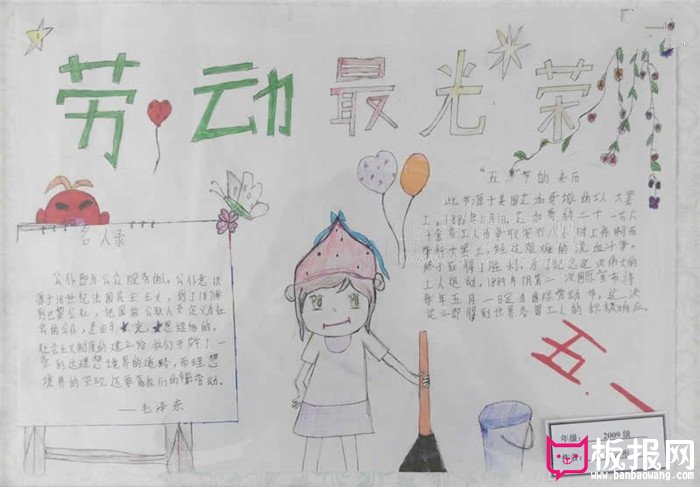 劳动最光荣
"五一"节的来历
此节源于美国芝加哥城的工人大罢
工,1886年5月1日,芝加哥的二十一万六
千余名工人为争取实行八小时工作制而
举行大罢工,经过艰难的流血斗争,
终于获得了胜利。为了纪念这次伟大的
工人运动,1889年7月第二国际宣布将
每年五月一日定为国际劳动节。这一决
定立即得到世界各国工人的积极响应。
名人录
公仆即为公众服务的人。公仆意识
源于18世纪法国民主主义,到了1871年
到巴黎公社,把国家公职人员定义为社
会的公仆,是由于
社会主义制度的建立给我们开辟了一
条到达理想境界的道路,而理想
境界的实现还要靠我们的辛勤劳动。
——毛泽东
五.一
年级: 2009级
板报网
www.banbaowang.com